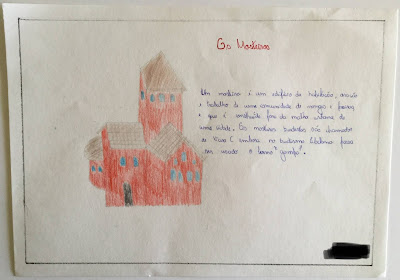 Os Mosteiros
Um mosteiro é um edifício de habitação, oração
e trabalho de uma comunidade de monges e freiras
e que é construído fora da malha urbana de
uma cidade. Os mosteiros budistas são chamados
de Vicara (embora no budismo tibetano possa
ser usado o termo "gompa".